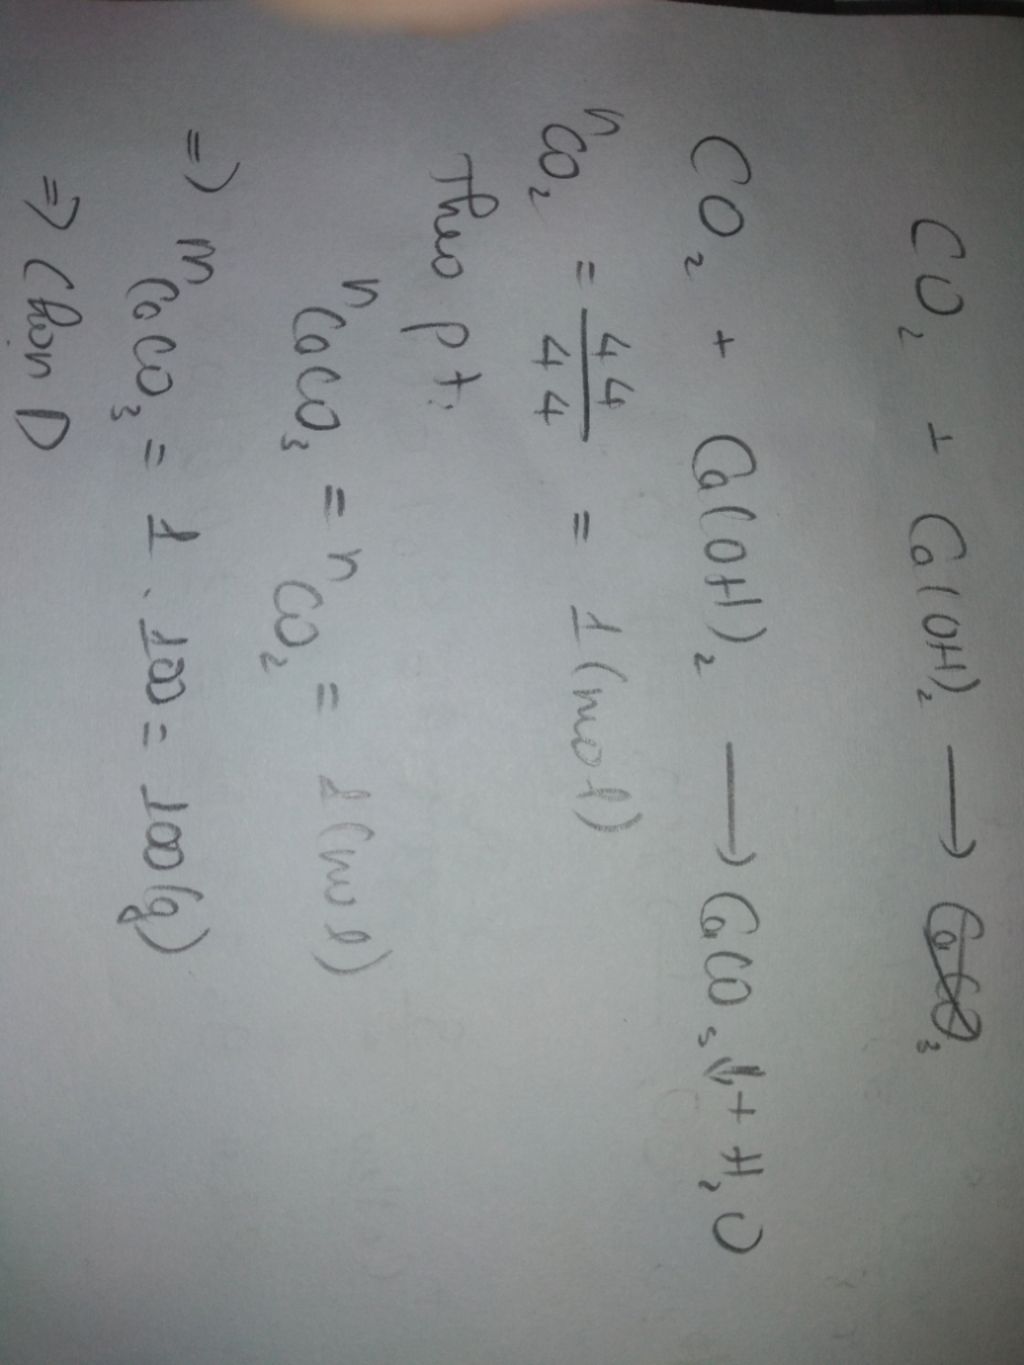 CO₂ + Ca(OH)₂ → CaCO₃
CO₂ + Ca(OH)₂ → CaCO₃↓ + H₂O
nCO₂ = 44/44 = 1 (mol)
Theo pt:
nCaCO₃ = nCO₂ = 1 (mol)
=> mCaCO₃ = 1 . 100 = 100 (g)
=> Chọn D